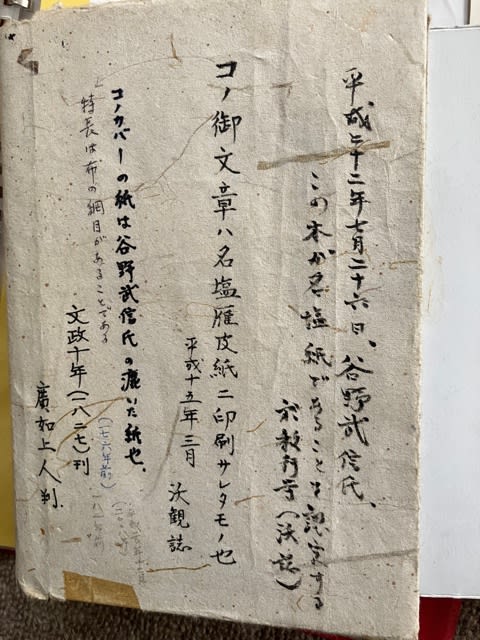 平成二十二年七月二十六日、谷野武信氏、
この本が名塩紙であることを認定する
於教行寺(沃誌)
コノ御文章ハ名塩雁皮紙ニ印刷サレタモノ也
平成十五年三月 沃観誌
コノカバーの紙は谷野武信氏の漉いた紙也、
特長は布の網目があることである
文政十年(一八二七)刊
(一七六年前)
廣如上人判